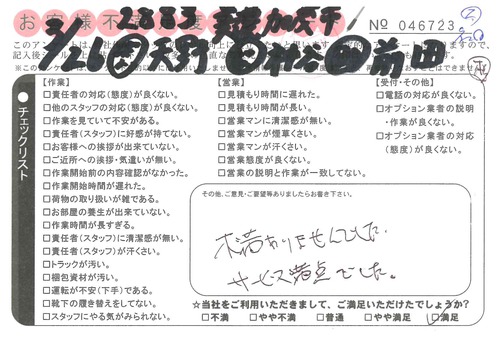 お客様不満足度
2883 実 加 平
No 046723
3/26 天野 村松 前田
【作業】
□責任者の対応(態度)が良くない。
□他のスタッフの対応(態度)が良くない。
□作業を見ていて不安がある。
□責任者(スタッフ)に好感が持てない。
□お客様への挨拶が出来ていない。
□ご近所への挨拶・気遣いが無い。
□作業開始前の内容確認がなかった。
□作業開始時間が遅れた。
□荷物の取り扱いが雑である。
□お部屋の養生が出来ていない。
□作業時間が長すぎる。
□責任者(スタッフ)に清潔感が無い。
□責任者(スタッフ)が汗くさい。
□トラックが汚い。
□梱包資材が汚い。
□運転が不安(下手)である。
□靴下の履き替えをしてない。
□スタッフにやる気がみられない。
【営業】
□見積もり時間に遅れた。
□見積もり時間が長い。
□営業マンに清潔感が無い。
□営業マンが煙草くさい。
□営業マンが汗くさい。
□営業態度が良くない。
□営業の説明と作業が一致してない。
【受付・その他】
□電話の対応が良くない。
□オプション業者の説明
・作業が良くない。
□オプション業者の対応
(態度)が良くない。
●チェックリスト
その他、ご意見・ご要望等ありましたらお書き下さい。
不満ありませんでした。
サービス満点でした。
☆当社をご利用いただきまして、ご満足いただけたでしょうか?
□不満 □やや不満 □普通 □やや満足 □満足